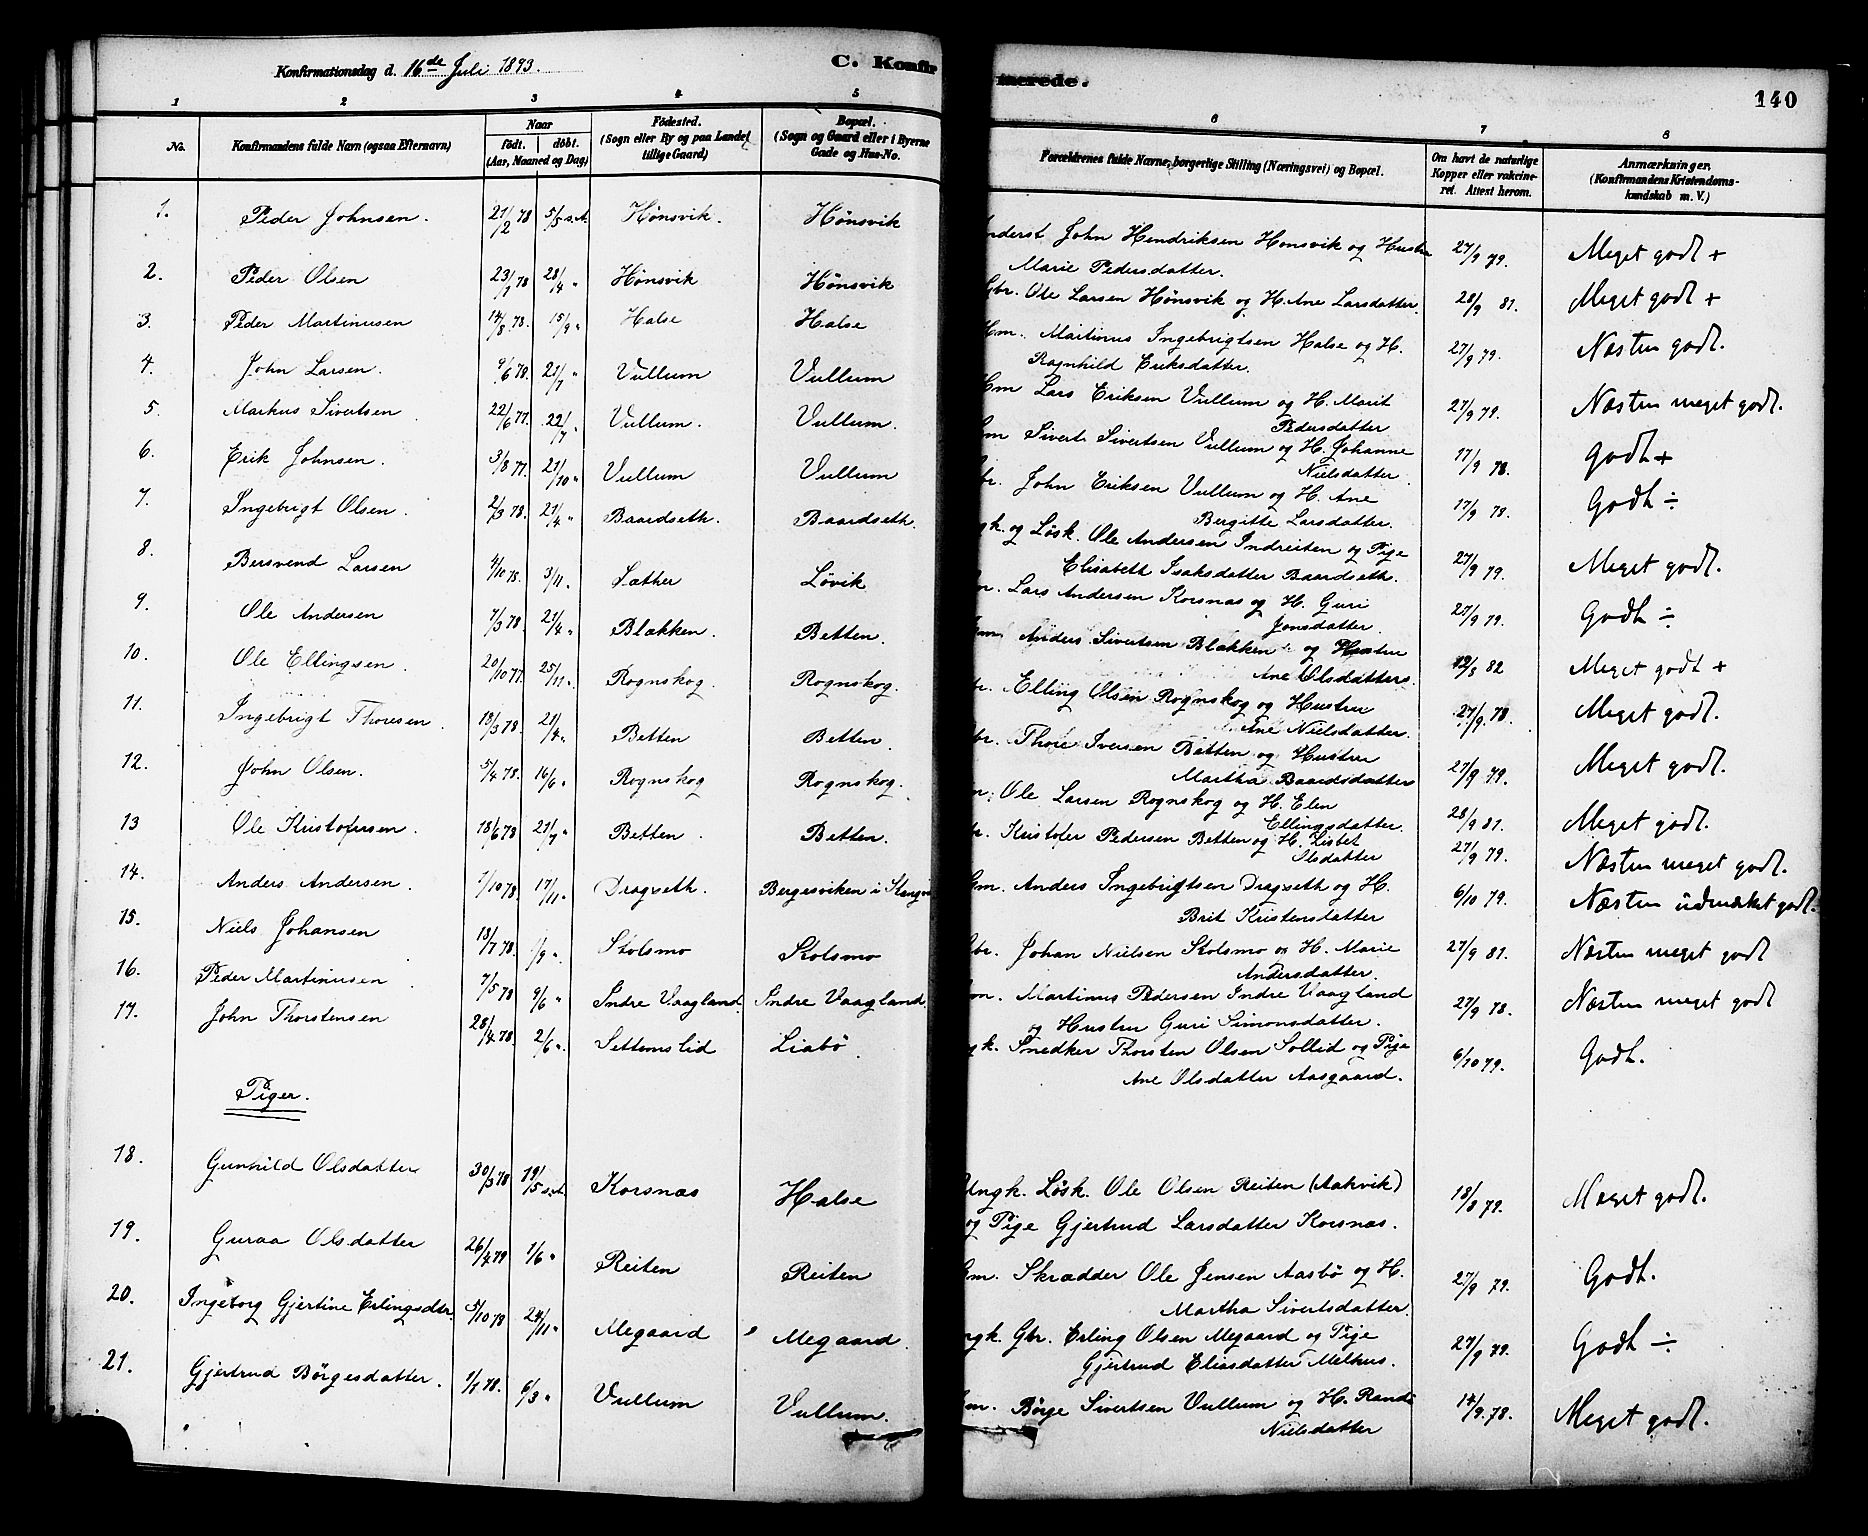 Konfirmationsdag d. 16de Juli 1893. C. Konfirmerede. 140
1 2 3 4 5 6 7 8
No. Konfirmandens fulde Navn (ogsaa Efternavn) Naar født. døbt. (Aar, Maaned og Dag) Fødested. (Sogn eller By og paa Landet tillige Gaard) Bopæl. (Sogn og Gaard eller i Byerne Gade og Hus-No. Forældrenes fulde Navne, borgerlige Stilling (Næringsvei) og Bopæl. Om havt de naturlige Kopper eller vakcineret. Attest herom. Anmærkninger. (Konfirmandens Kristendomskundskab m. V.)
1. Peder Johnsen. 21/2 78 5/5 s.A. Hønsvik. Hønsvik John Hendriksen Honsvik og Hustru 27/9 79. Meget godt +
Marie Pedersdatter.
2. Peder Olsen 23/1 78 28/4 " Hønsvik Hønsvik Gbr. Ole Larsen Hønsvik og H. Ane Larsdatter. 28/9 81. Meget godt +
3. Peder Martinusen 14/8 78. 15/9 " Halse Halse Hm. Martinus Ingebrigtsen Halse og H. 27/9 79. Næsten godt.
Ragnhild Eriksdatter.
4. John Larsen. 9/6 78. 21/7 " Vullum Vullum Hm Lars Eriksen Vullum og H. Marit 27/9 79. Næsten meget godt.
Pedersdatter
5. Markus Sivertsen 22/6 77. 22/7 " Vullum. Vullum. Sivert Sivertsen Vullum og H. Johanne 17/9 78. Godt +
Nielsdatter.
6. Erik Johnsen. 3/8 77. 21/10 " Vullum Vullum John Eriksen Vullum og H. Ane 17/9 78. Godt ÷
Bergitte Larsdatter.
7. Ingebrigt Olsen. 2/3 78. 21/4 " Baardseth. Baardseth. og Løsk. Ole Andersen Indreiten og Pige 27/9 79. Meget godt.
Elisabeth Isaksdatter Baardseth.
8. Bersvend Larsen 4/10 78. 3/11. Læther Løvik Lars Andersen Korsnæs og H. Guri 27/9 79. Godt ÷
Jonsdatter.
9. Ole Andersen 7/3 78. 21/4 " Blækken. Betten. Anders Sivertsen Blækken og Hustru 12/8 82 Meget godt +
Ane Olsdatter.
10. Ole Ellingsen. 20/10 77. 25/11. Rognskog. Rognskog. Elling Olsen Rognskog og Hustru 27/9. 78. Meget godt.
Ane Nielsdatter.
11. Ingebrigt Thoresen. 13/3 78. 21/4 " Betten Betten. Thore Iversen Betten og Hustru 27/9 79. Meget godt.
Martha Baardsdatter
12. John Olsen. 5/4 78. 16/6 " Rognskog Rognskog. Ole Larsen Rognskog og H. Elen 28/9 81. Meget godt.
Ellingsdatter.
13 Ole Kristofersen. 18/6 78 21/7 " Betten. Betten. Kristofer Pedersen Betten og H. Lisbet 27/9 79. Næsten meget godt.
Olsdatter
14. Anders Andersen. 1/10 78. 17/11. Dragseth. Bergesviken i Anders Ingebrigtsen Dragseth og H. 6/10 79. Næsten udmærket godt.
Brit Kristensdatter
15. Niels Johansen 18/7 78. 1/9 ". Stolsmo Stolsmo Gbr. Johan Nielsen Stolsmo og H. Marie 27/9 81. Næsten meget godt
Andersdatter.
16. Peder Martinusen 7/5 78 9/6 " Indre Vaagland. Indre Vaagland Martinus Pedersen Indre Vaagland 27/9 78. Næsten meget godt
og Hustru Guri Simonsdatter.
17. John Thorstensen 28/4 78. 2/6 ". Settemslid Liabø. Snedker Thorsten Olsen Sollid og Pige 6/10 79. Godt.
Ane Olsdatter Aasgaard.
Piger.
18. Gunhild Olsdatter 30/3 78 19/5 s.A. Korsnæs Halse Ungk. Løsk. Ole Olsen Reiten (Aakvik) 18/8 79. Meget godt.
og Pige Gjertrud Larsdatter Korsnæs.
19. Guraa Olsdatter 26/4 79 1/6 " Reiten Reiten Skrædder Ole Jensen Aasbø og H. 27/9 79. Godt.
Martha Sivertsdatter.
20. Ingeborg Gjertine Erlingsdtr. 5/10 78 24/11 " Megaard " Megaard. Gbr. Erling Olsen Megaard og Pige 27/9 79. Godt ÷
Gjertrud Eliasdatter Melhus.
21. Gjertrud Børgesdatter. 1/1 78. 6/3 " Vullum Vullum. Børge Sivertsen Vullum og H. Randi 14/9. 78. Meget godt.
Nielsdatter